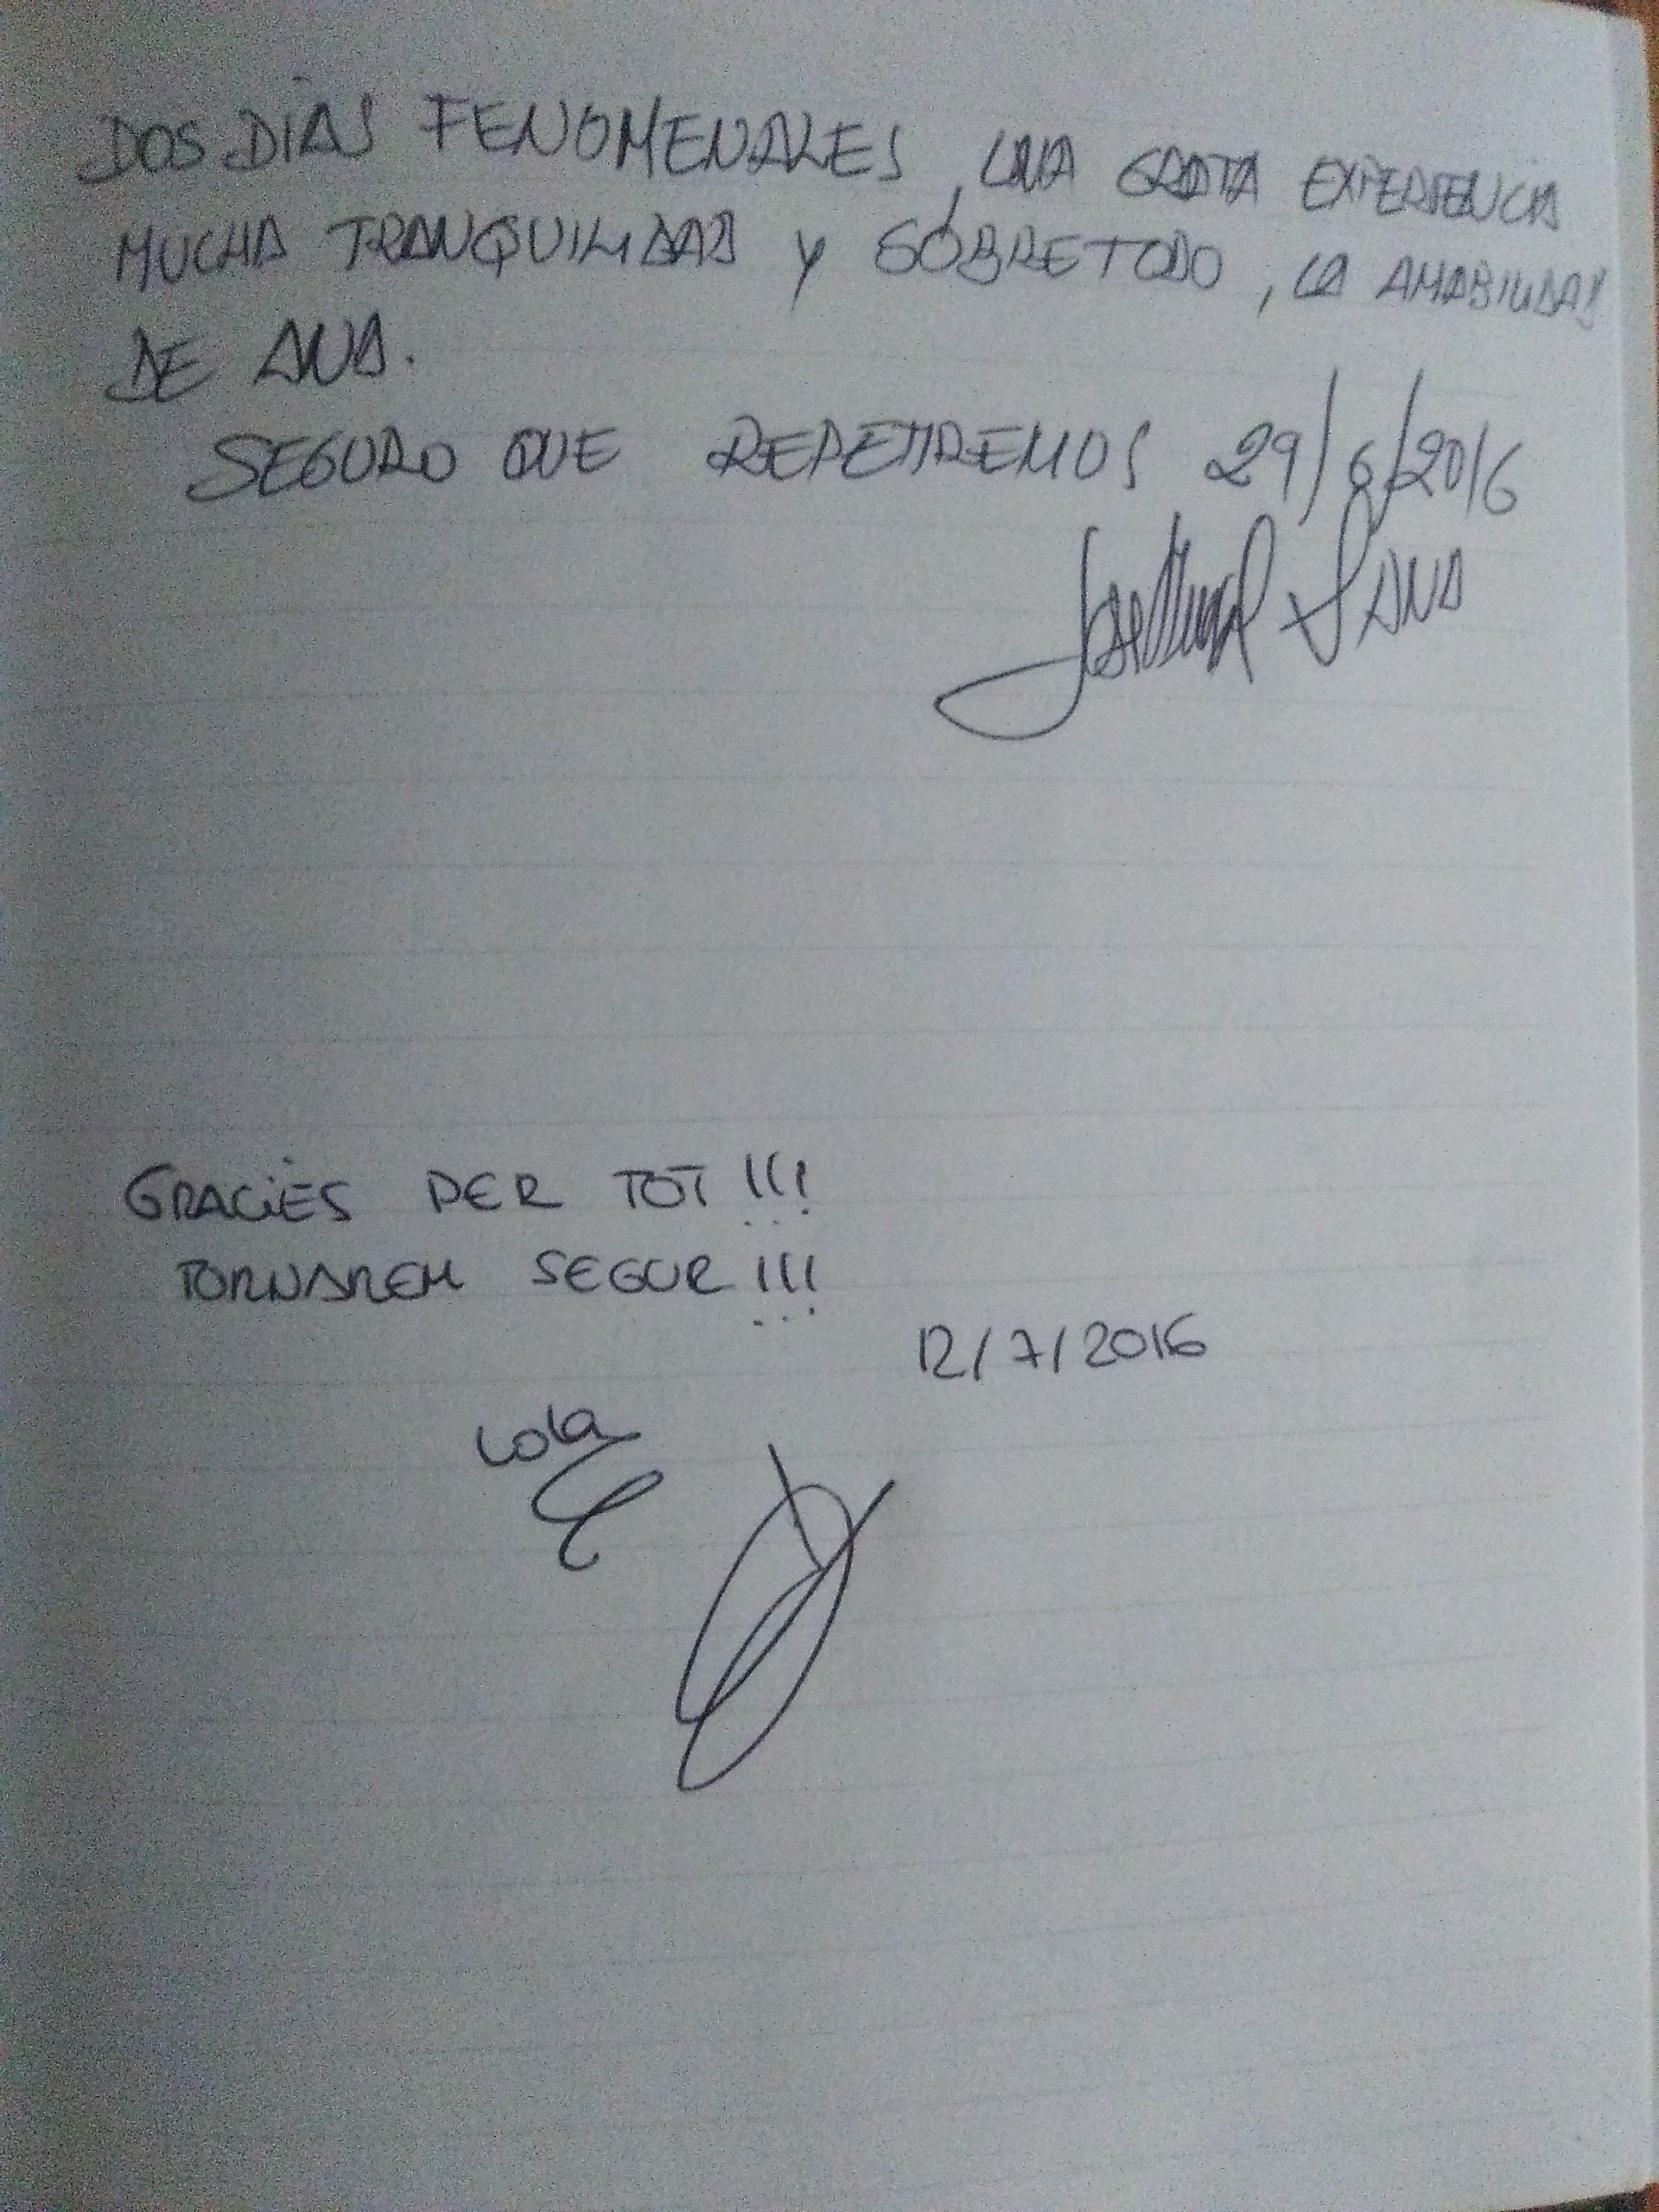 DOS DÍAS FENOMENALES, UNA GRATA EXPERIENCIA
MUCHA TRANQUILIDAD Y SOBRETODO, LA AMABILIDAD
DE ANA.
SEGURO QUE REPETIREMOS 29/6/2016
ANA
GRACIES PER TOT!!!
TORNAREM SEGUR!!!
12/7/2016
Lola